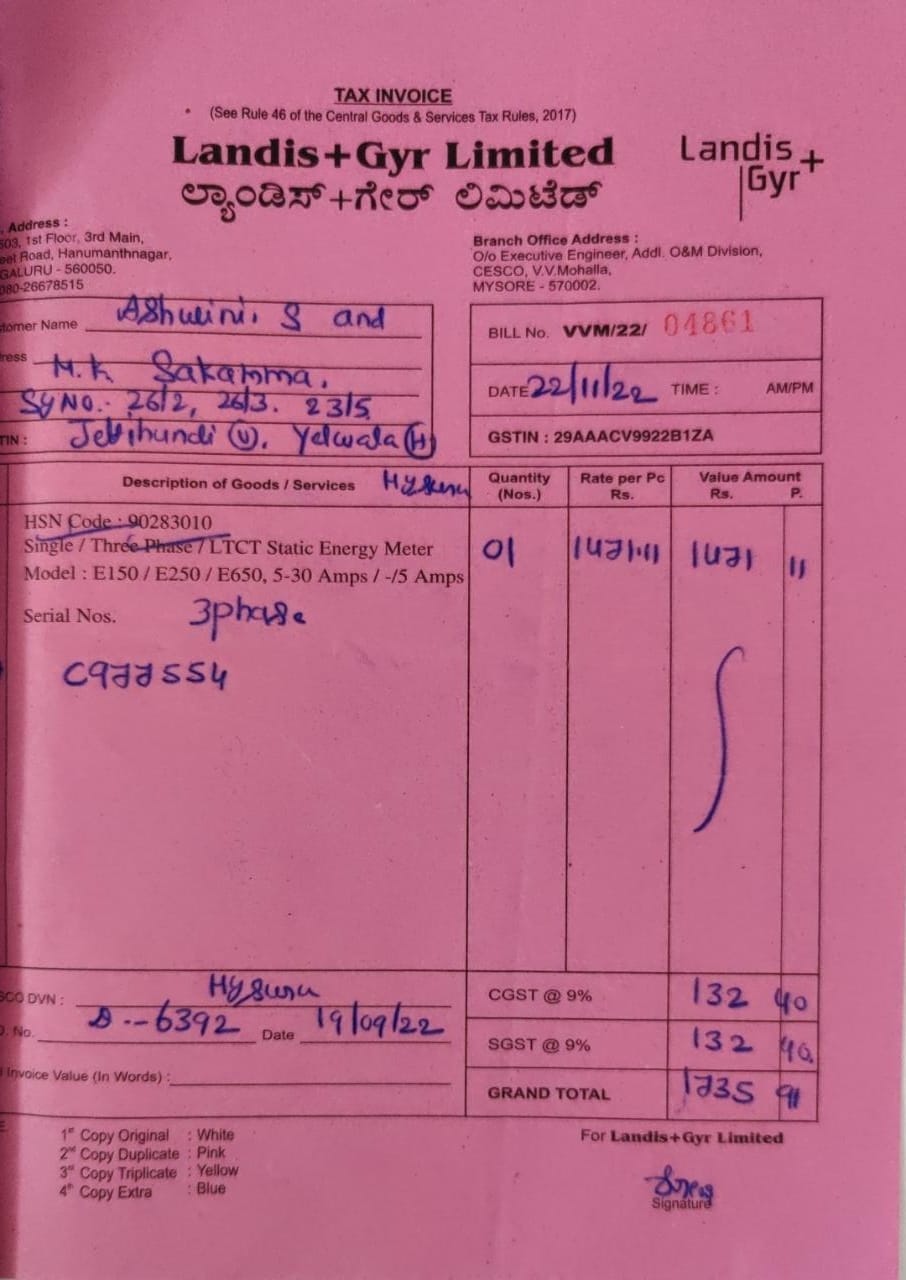 TAX INVOICE
(See Rule 46 of the Central Goods & Services Tax Rules, 2017)
Landis+Gyr Limited
ಲ್ಯಾಂಡಿಸ್+ಗೇರ್ ಲಿಮಿಟೆಡ್
Landis+
Gyr
. Address :
603, 1st Floor, 3rd Main,
eet Road, Hanumanthnagar,
GALURU - 560050.
080-26678515
Branch Office Address :
O/o Executive Engineer, Addl. O&M Division,
CESCO, V.V.Mohalla,
MYSORE - 570002.
tomer Name Ashwini. S and
ress M.K Sakamma,
Sy NO.- 26/2, 26/3. 23/5
TIN : Jettihundi (V), Yelwala (H)
BILL No. VVM/22/ 04861
DATE 22/11/22 TIME : AM/PM
GSTIN : 29AAACV9922B1ZA
Description of Goods / Services Mysuru Quantity (Nos.) Rate per Pc Rs. Value Amount Rs. P.
HSN Code : 90283010
Single / Three Phase / LTCT Static Energy Meter 01 1471.11 1471 11
Model : E150 / E250 / E650, 5-30 Amps / -/5 Amps
Serial Nos. 3phase
C977554
SCO DVN : Mysuru
CGST @ 9% 132 40
. No. D--6392 Date 19/09/22
SGST @ 9% 132 40
Invoice Value (In Words) :
GRAND TOTAL 1735 91
1st Copy Original : White
2nd Copy Duplicate : Pink
3rd Copy Triplicate : Yellow
4th Copy Extra : Blue
For Landis+Gyr Limited
Signature